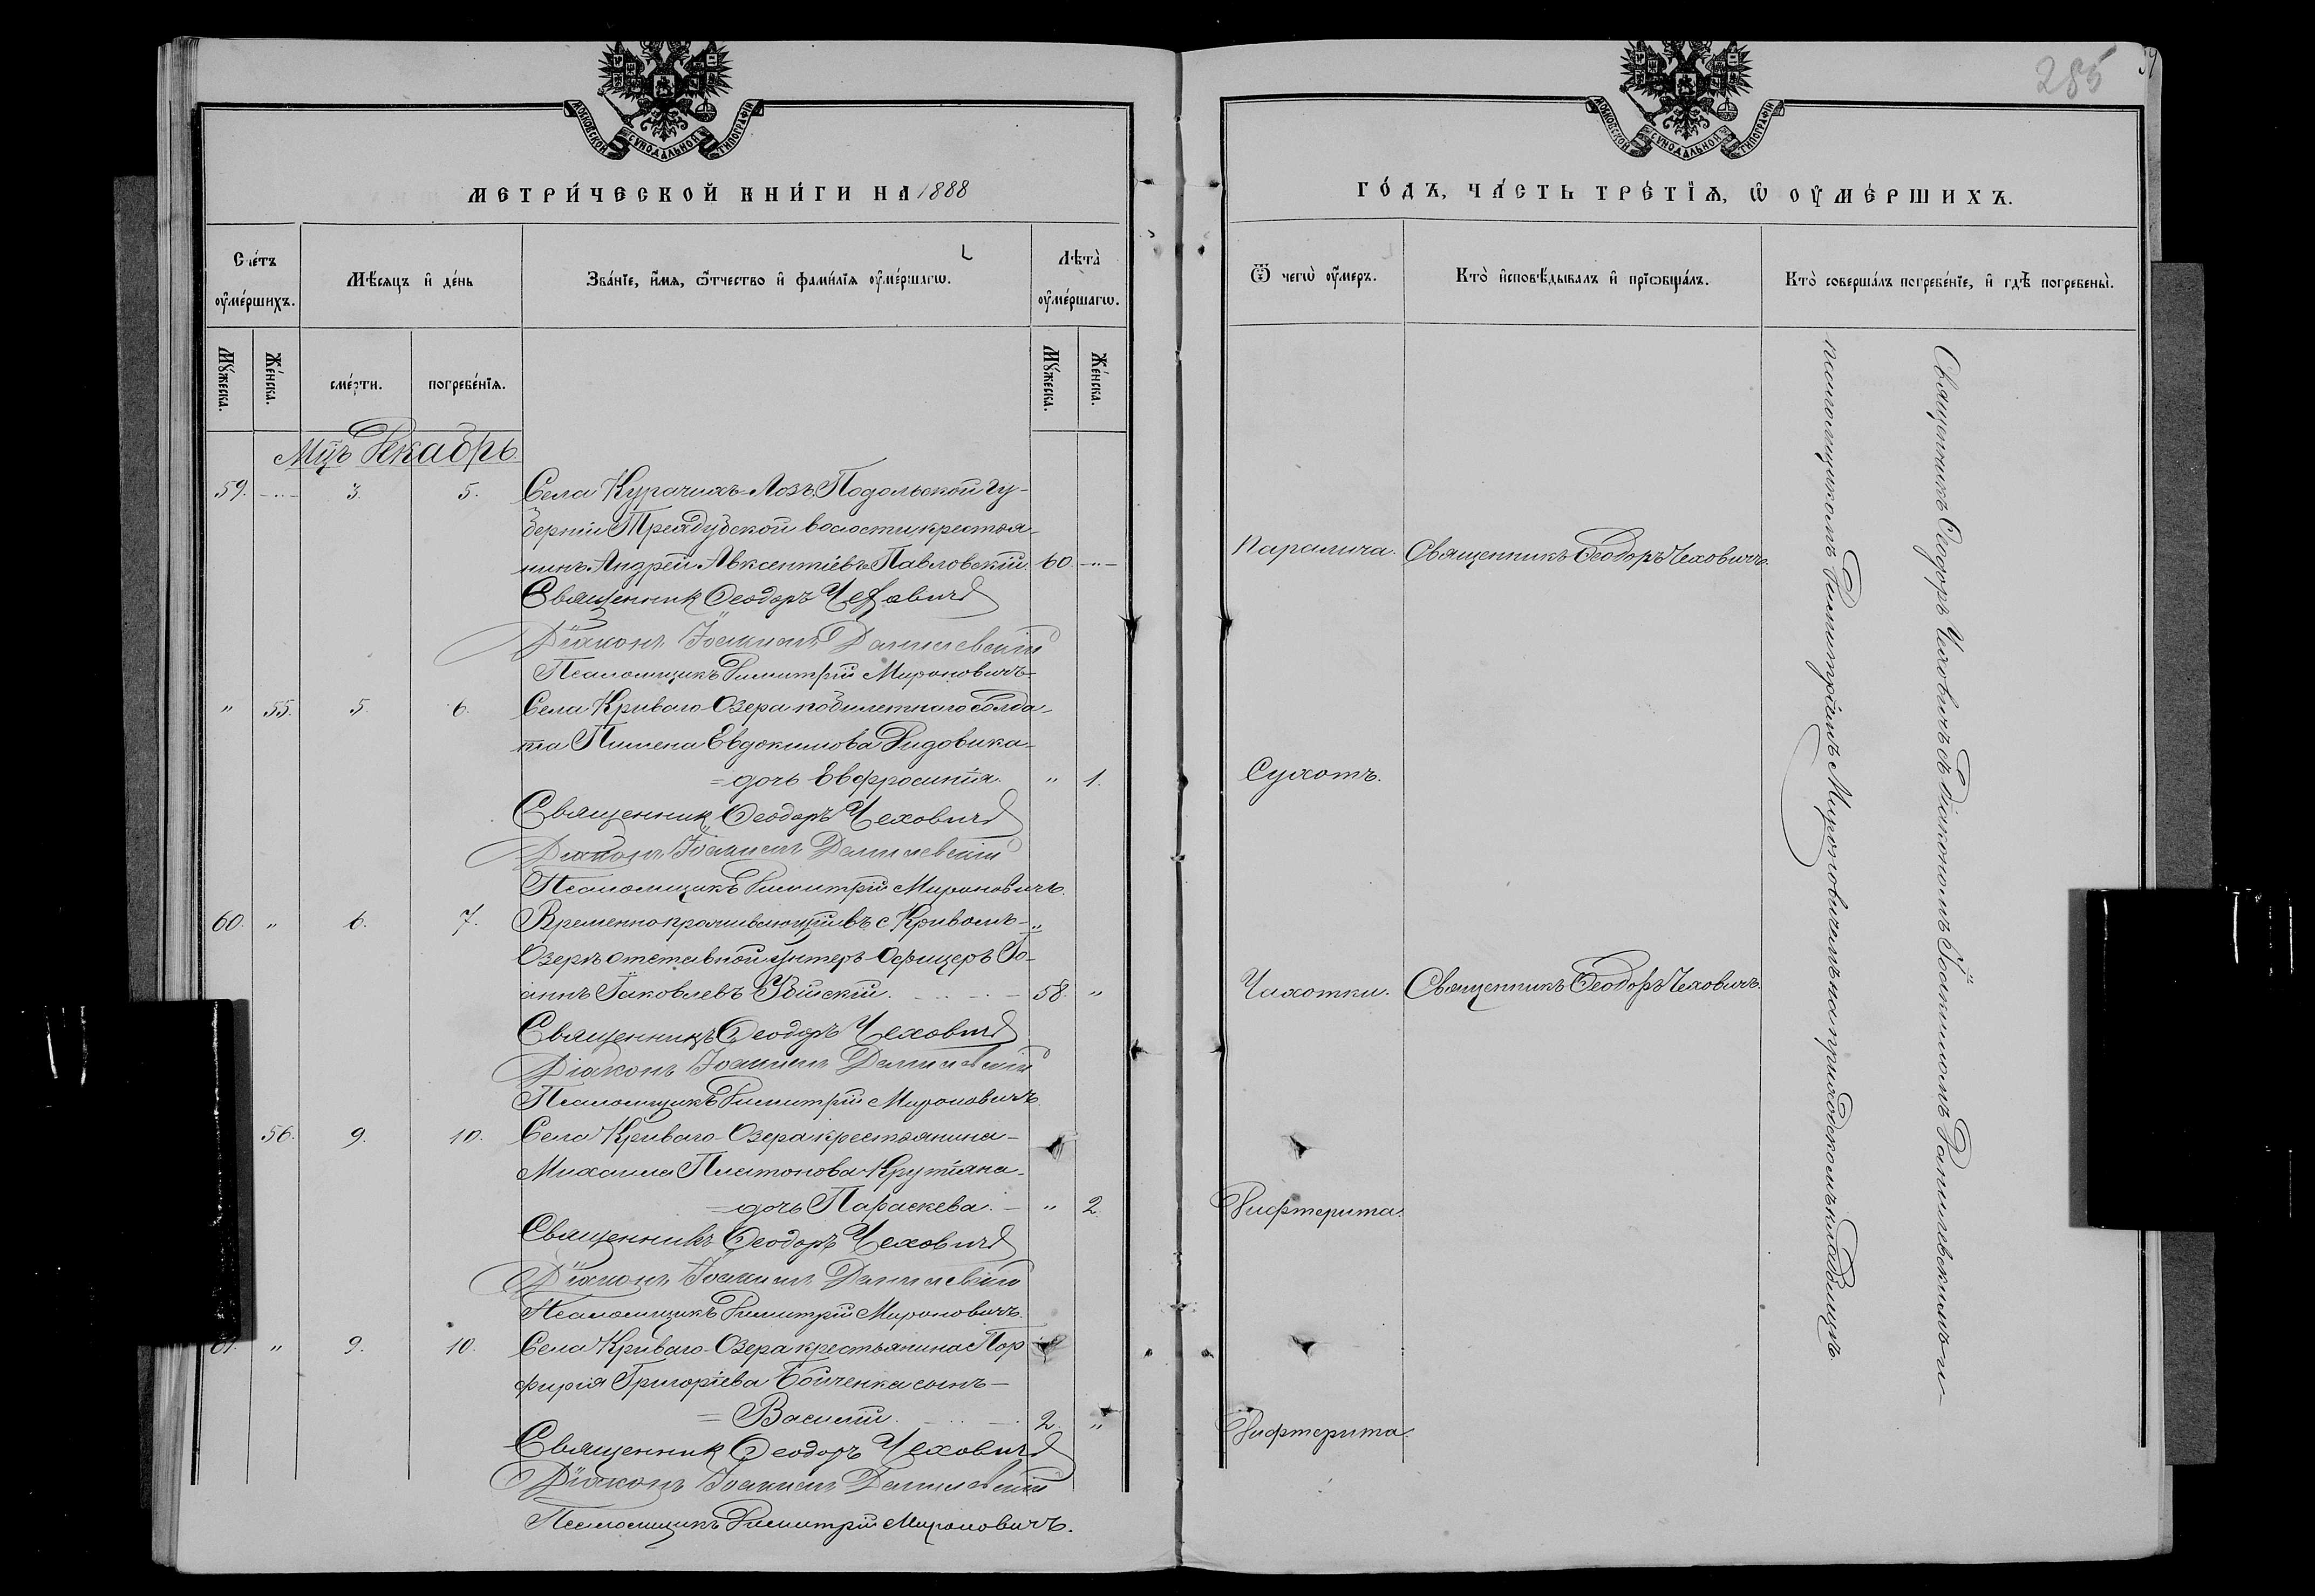 285
МОСКОВСКОЙ СѴНОДАЛЬНОЙ ТИПОГРАФІИ
МЕТРИ́ЧЕСКОЙ КНИ́ГИ НА 1888
Сче́тъ ᲂу҆ме́ршихъ.
Мѣ́сяцъ и҆ де́нь
Зва́нїе, и҆́мѧ, ѻ҆́тчество и҆ фами́лїѧ ᲂу҆ме́ршагѡ.
Лѣ́та ᲂу҆ме́ршагѡ.
Мꙋ́жеска.
Же́нска.
сме́рти.
погребе́нїѧ.
Мꙋ́жеска.
Же́нска.
Мцъ Декабрь.
59. 3. 5. Села Курачихъ-Лозъ, Подольской гу-
берніи Тридубской волости, крестья-
нинъ Андрей Авксентіевъ Павловскій. 60.
Священник Ѳеодоръ Чехович
Діаконъ Іоакимъ Данилевскій
Псаломщикъ Димитрій Мироновичъ
" 55. 5. 6. Села Криваго-Озера побилетнаго солда-
та Пимена Евдокимова Дидовика-
=дочь Евфросинія. " 1.
Священник Ѳеодоръ Чехович
Діаконъ Іоакимъ Данилевскій
Псаломщикъ Димитрій Мироновичъ.
60. " 6. 7. Временно проживающій въ с Кривомъ-
Озерѣ отставной Унтеръ-Офицеръ Іо-
аннъ Іаковлевъ 58. "
Священникъ Ѳеодоръ Чехович
Діаконъ Іоакимъ Данилевскій
Псаломщикъ Димитрій Мироновичъ
56. 9. 10. Села Криваго-Озера крестьянина-
Михаила Платонова Крутіяна-
=дочь Параскева. " 2.
Священникъ Ѳеодоръ Чехович
Діаконъ Іоакимъ Данилевскій
Псаломщикъ Димитрій Мироновичъ.
61. " 9. 10. Села Криваго-Озера крестьянина Пор
фирія Григоріева Бойченка сынъ-
=Василій. 2. "
Священник Ѳеодоръ Чехович
Діаконъ Іоакимъ Данилевскій
Псаломщикъ Димитрій Мироновичъ.
МОСКОВСКОЙ СѴНОДАЛЬНОЙ ТИПОГРАФІИ
ГО́ДЪ, ЧА́СТЬ ТРЕ́ТЇѦ, Ѡ҆ ОУ҆МЕ́РШИХЪ.
Ѿ чегѡ̀ ᲂу҆́меръ.
Кто̀ и҆сповѣ́дывалъ и҆ прїѡбща́лъ.
Кто̀ соверша́лъ погребе́нїе, и҆ гдѣ̀ погребены̀.
Паралича. Священникъ Ѳеодоръ Чеховичъ.
Сухотъ.
Чахотки. Священникъ Ѳеодоръ Чеховичъ.
Дифтерита.
Дифтерита.
Священникъ Ѳеодоръ Чеховичъ съ Діакономъ Іоакимомъ Данилевскимъ и-
псаломщикомъ Димитріемъ Мироновичемъ на приходскомъ кладбищѣ.